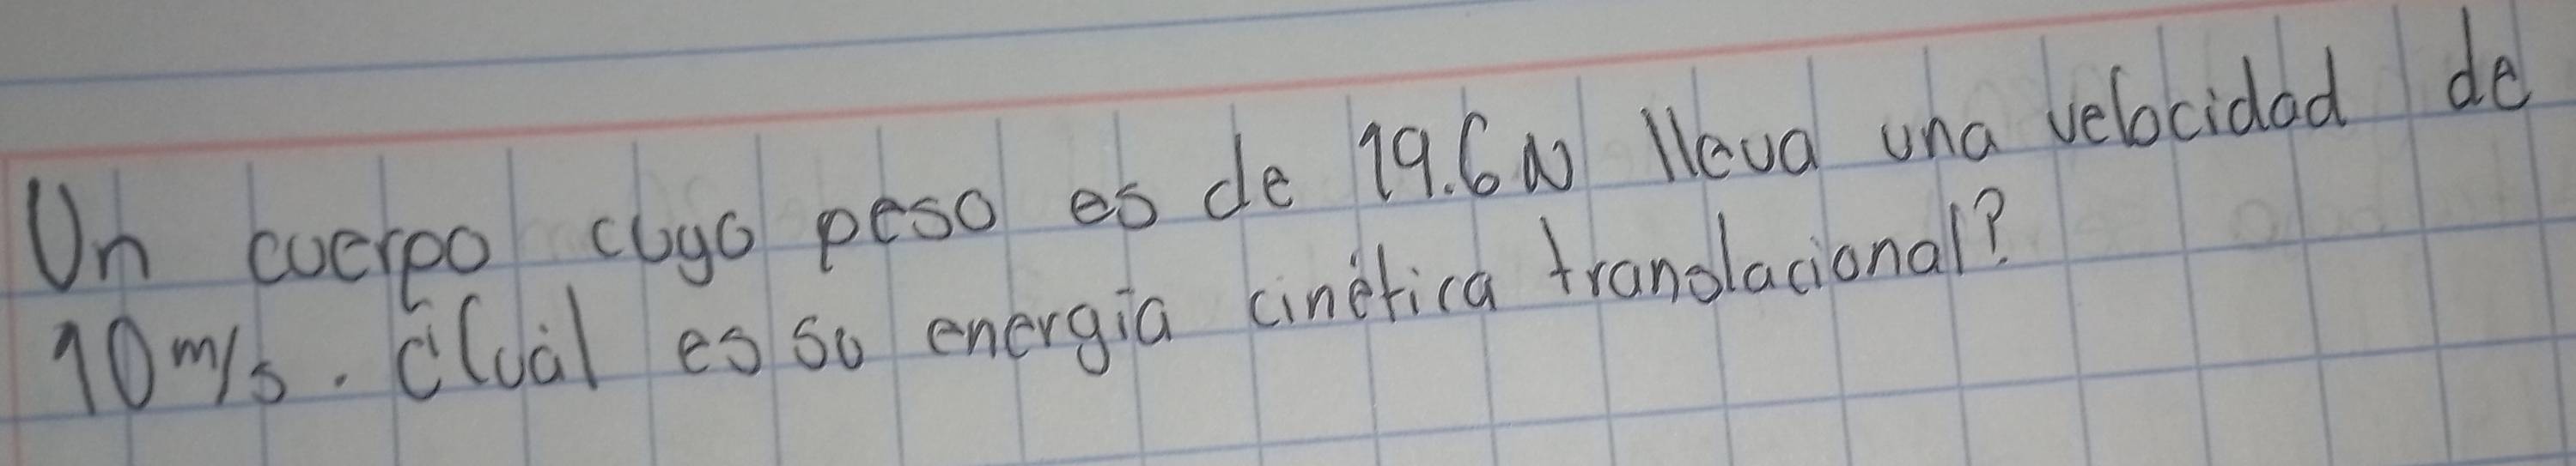 Un cuerpo cuyo peso es de 19.6N lleva una velocidad de
10m/s. ¿Cuál es su energía cinética translacional?